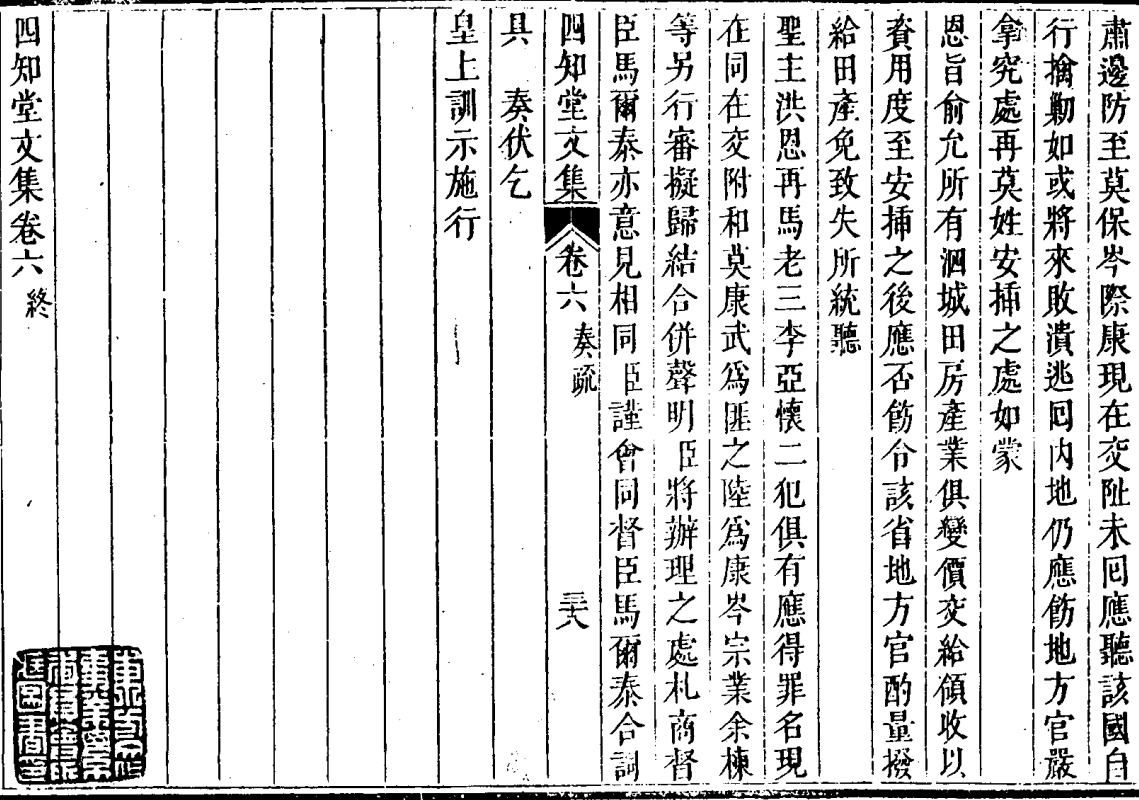 肅邊防至莫保岑際康現在交阯未囘應聽該國自
行擒勦如或將來敗潰逃囘内地仍應飭地方官嚴
拿究處再莫姓安揷之處如蒙
恩旨俞允所有泗城田房產業俱變價交給領收以
資用度至安揷之後應否飭令該省地方官酌量撥
給田產免致失所統聽
聖主洪恩再馬老三李亞懷二犯俱有應得罪名現
在同在交附和莫康武爲匪之陸爲康岑宗業余棟
等另行審擬歸結合併聲明臣將辦理之處札商督
臣馬爾泰亦意見相同臣謹會同督臣馬爾泰合詞
四知堂文集 卷六 奏疏 三十八
具 奏伏乞
皇上訓示施行
四知堂文集卷六 終